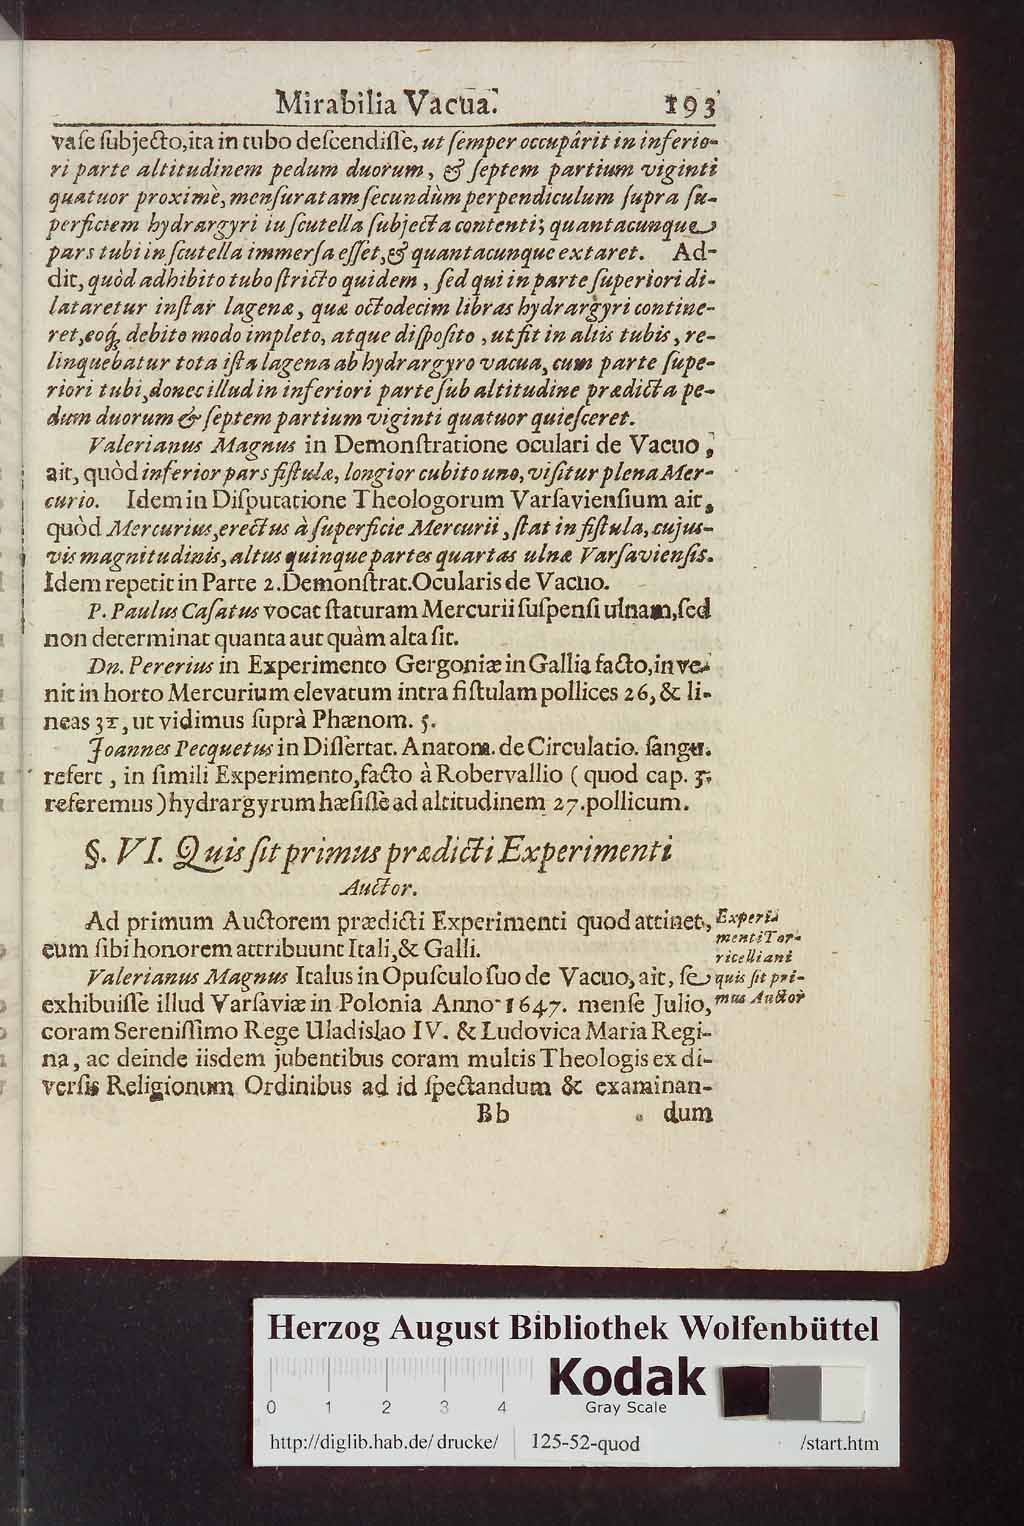 Mirabilia Vacua. 193
vaſe ſubjecto,ita in tubo deſcendiſſe, ut ſemper occupârit in inferio-
ri parte altitudinem pedum duorum, & ſeptem partium viginti
quatuor proximè, menſuratam ſecundùm perpendiculum ſupra ſu-
perficiem hydrargyri iu ſcutella ſubjecta contenti; quantacunque
pars tubi in ſcutella immerſa eſſet,& quantacunque extaret. Ad-
dit, quòd adhibito tubo ſtricto quidem, ſed qui in parte ſuperiori di-
lataretur inſtar lagenæ, quæ octodecim libras hydrargyri contine-
ret,eoq́; debito modo impleto, atque diſpoſito, ut fit in altis tubis, re-
linquebatur tota iſta lagena ab hydrargyro vacua, cum parte ſupe-
riori tubi, donec illud in inferiori parte ſub altitudine prædicta pe-
dum duorum & ſeptem partium viginti quatuor quieſceret.
Valerianus Magnus in Demonſtratione oculari de Vacuo,
ait, quòd inferior pars fiſtulæ, longior cubito uno, viſitur plena Mer-
curio. Idem in Diſputatione Theologorum Varſavienſium ait,
quòd Mercurius, erectus à ſuperficie Mercurii, ſtat in fiſtula, cujus-
vis magnitudinis, altus quinque partes quartas ulnæ Varſavienſis.
Idem repetit in Parte 2. Demonſtrat. Ocularis de Vacuo.
P. Paulus Caſatus vocat ſtaturam Mercurii ſuſpenſi ulnam, ſed
non determinat quanta aut quàm alta ſit.
Dn. Pererius in Experimento Gergoniæ in Gallia facto, inve-
nit in horto Mercurium elevatum intra fiſtulam pollices 26, & li-
neas 3 1/2, ut vidimus ſuprà Phænom. 5.
Joannes Pecquetus in Diſſertat. Anatom. de Circulatio. ſangu.
refert, in ſimili Experimento, facto à Robervallio (quod cap. 3.
referemus) hydrargyrum hæſiſſe ad altitudinem 27. pollicum.
§. VI. Quis ſit primus prædicti Experimenti
Auctor.
Ad primum Auctorem prædicti Experimenti quod attinet,
eum ſibi honorem attribuunt Itali, & Galli.
Experi-
menti Tor-
ricelliani
quis ſit pri-
mus Auctor
Valerianus Magnus Italus in Opuſculo ſuo de Vacuo, ait, ſe
exhibuiſſe illud Varſaviæ in Polonia Anno 1647. menſe Julio,
coram Sereniſſimo Rege Uladislao IV. & Ludovica Maria Regi-
na, ac deinde iisdem jubentibus coram multis Theologis ex di-
verſis Religionum Ordinibus ad id ſpectandum & examinan-
Bb dum
Herzog August Bibliothek Wolfenbüttel
Kodak
Gray Scale
0 1 2 3 4
http://diglib.hab.de/drucke/ 125-52-quod /start.htm